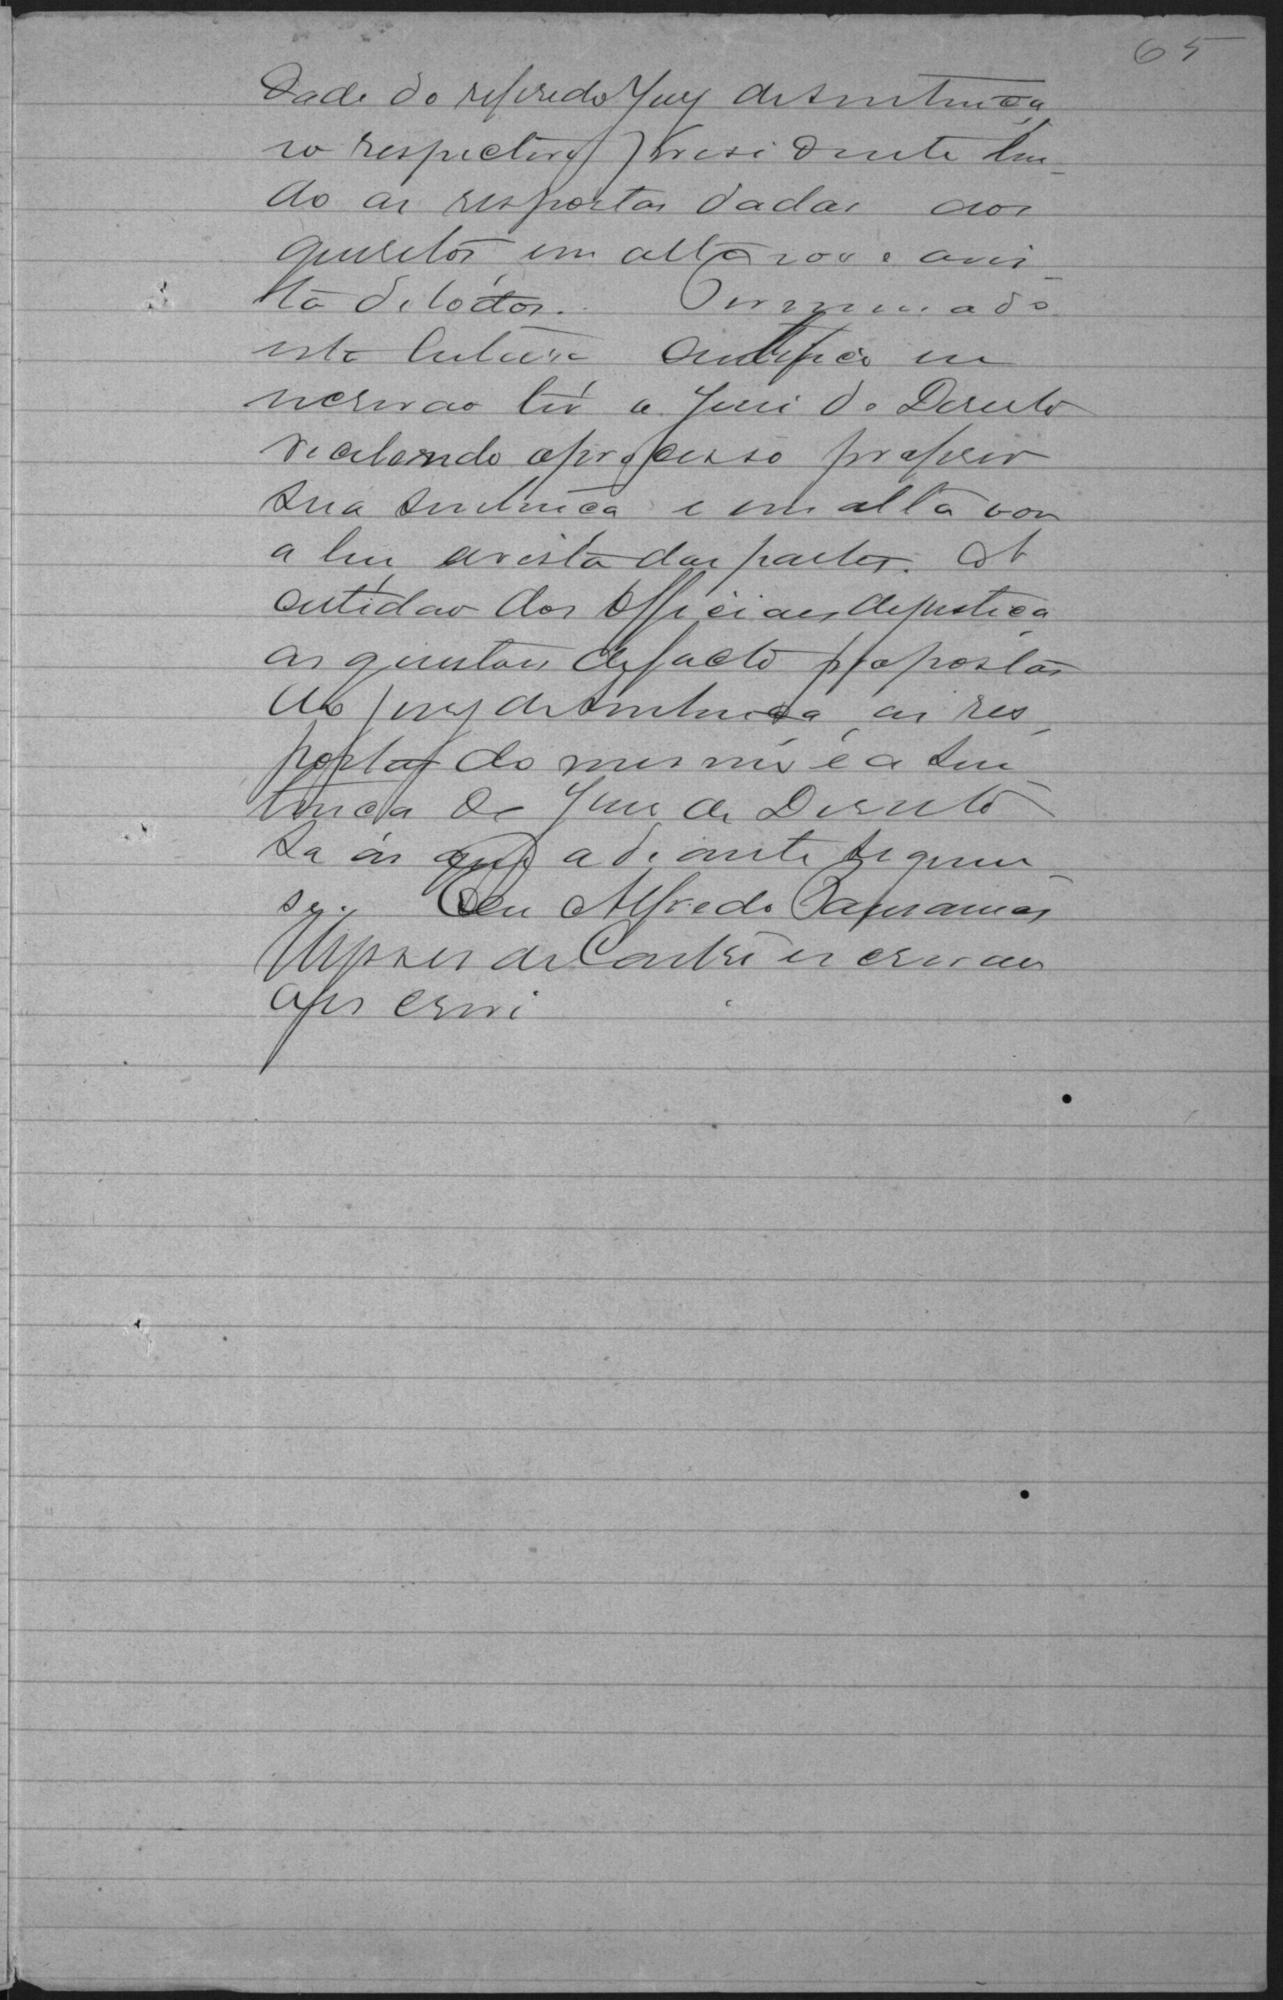 65
dade do referido Jury de Sentença
no respectivo Presidente len-
do as respostas dadas aos
quesitos em alta voz e avis-
ta de todos. Terminada
esta leitura
o Juiz de Direito
recebendo o processo proferio
sua sentença e em alta voz
a leu avista das partes. A
certidao dos Officiaes de justiça
as questoes de facto propostas
ao jury de Sentença, as res-
postas do mesmo e a Sen-
tença do Juiz de Direito
sa as que adiante seguem-
se. Eu Alfredo
Ulysses de Castro escrivao
que escrevi